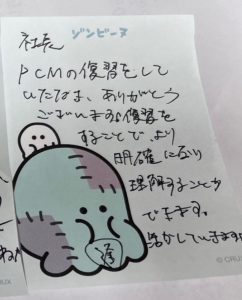 ゾンビーヌ
社長
PCMの復習をして
いただき、ありがとう
ございます。復習を
することで、より
明確になり
理解することが
できます。
活かしていきます
CRUX